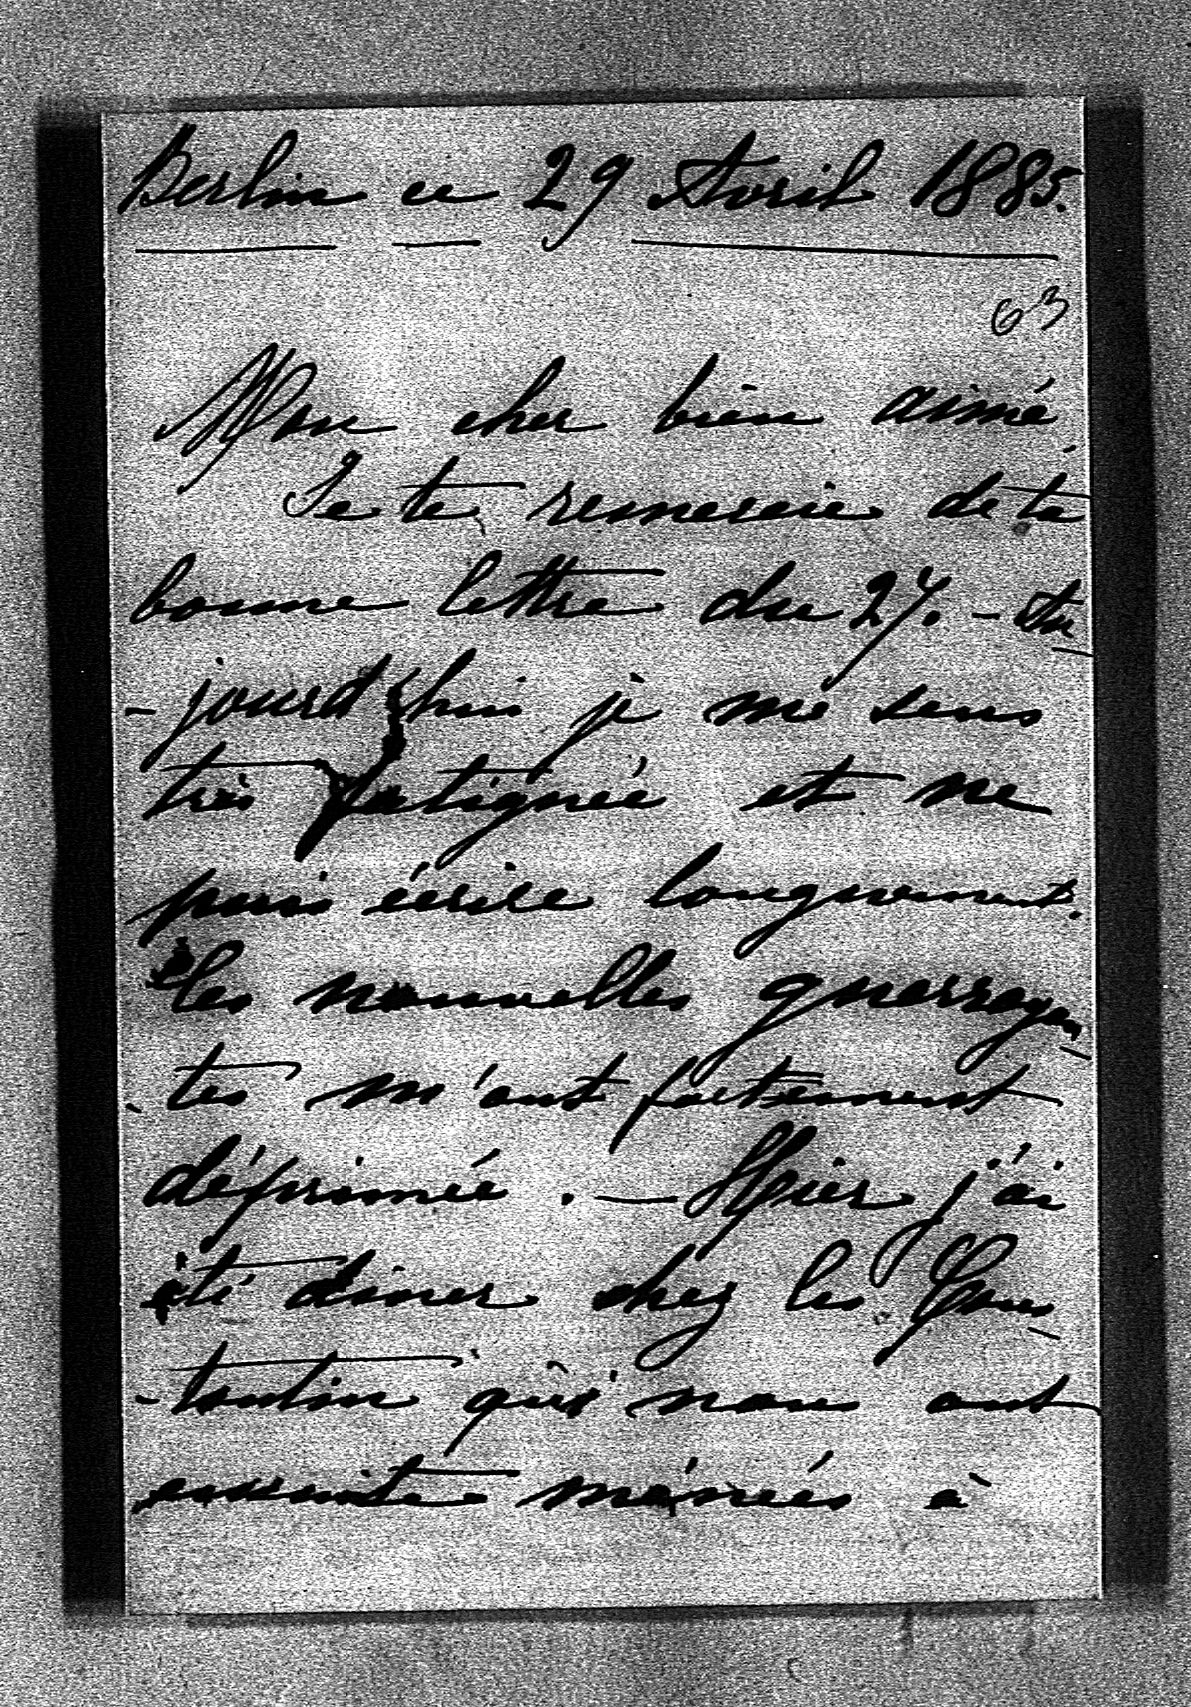 Berlin ce 29 Avril 1885.
63
Mon cher bien aimé
Je te remercie de ta
bonne lettre du 27. - Au
- jourd'hui je me sens
très fatiguée et ne
puis écrire longuement.
les nouvelles guerroyan
- tes m'ont fortement
déprimée. — Hier j'ai
été diner chez les
qui nous ont
ensuite menées à